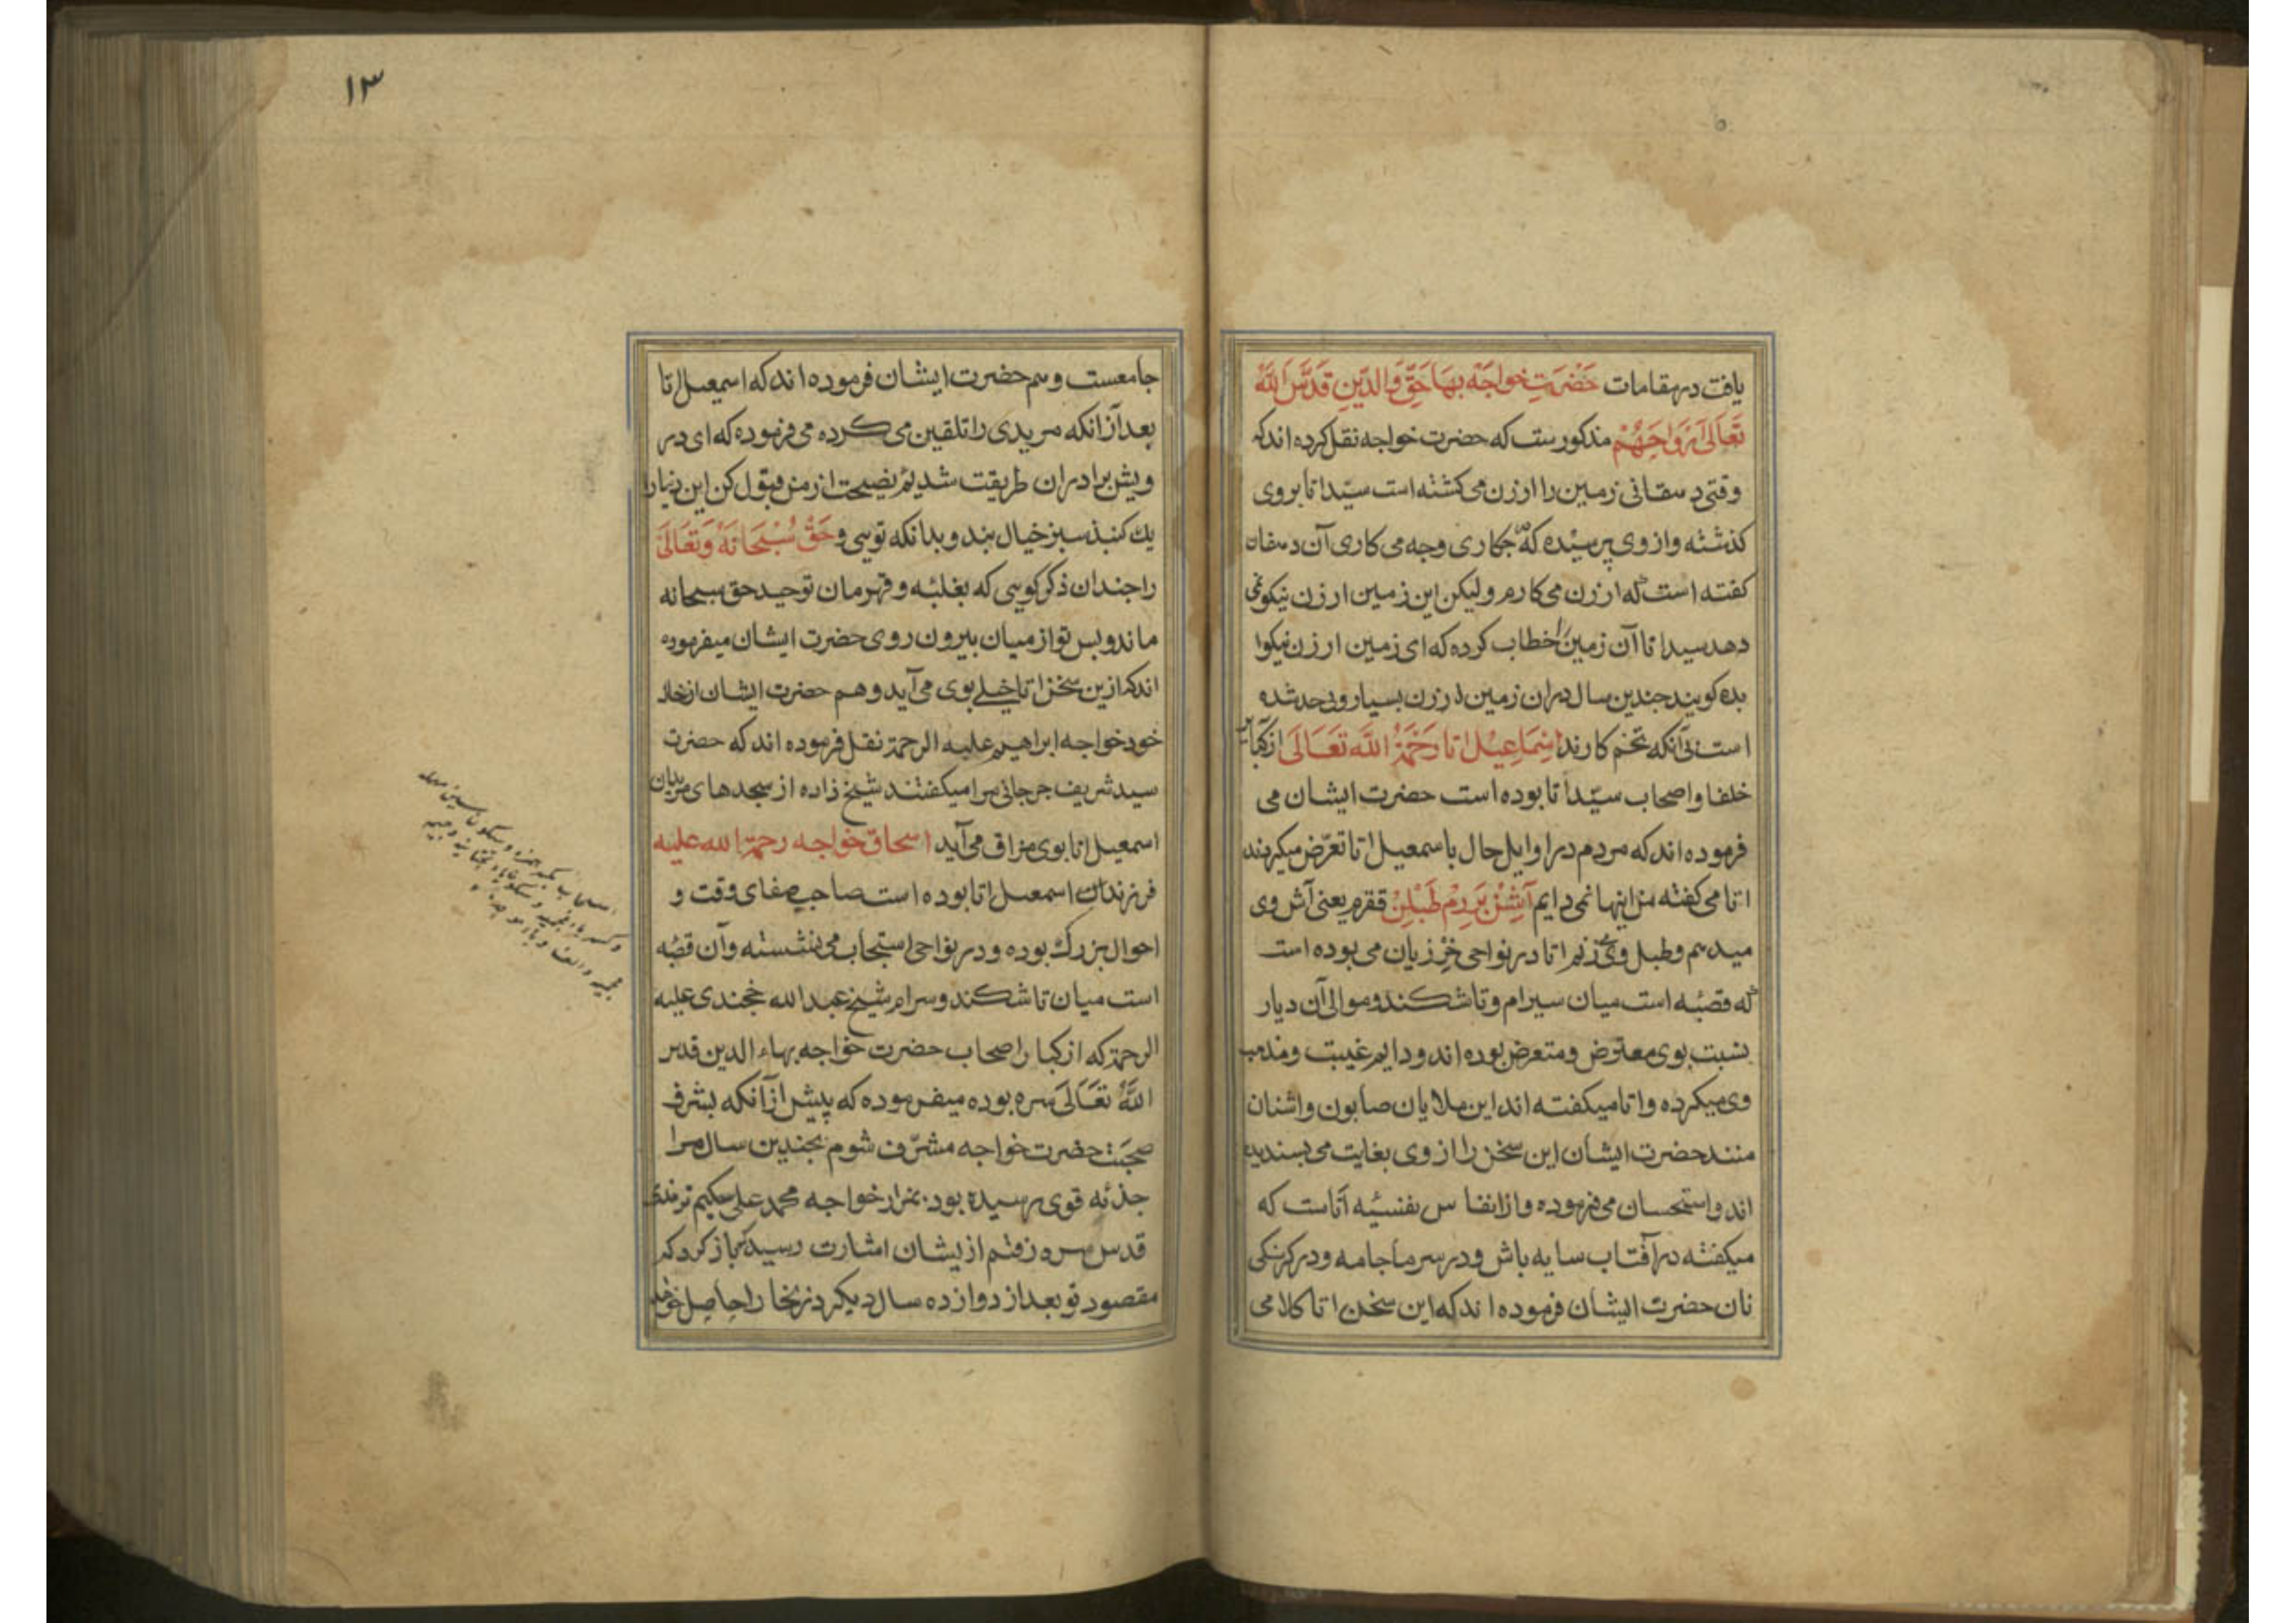 یافت در مقامات حَضْرَتِ خواجَهْ بهَاحَقِّ وَالدّینِ قَدَّسَ اللّٰهُ
تَعَالَی اَرْوَاحَهُمْ مذکورست که حضرت خواجه نقل کرده اند که
وقتی دهقانی زمین را ارزن می کشته است سیّد اتا بروی
کذشته و از وی پرسیده که جکاری وجه می کاری آن دهقان
کفته است که ارزن می کارم ولیکن این زمین ارزن نیکو نمی
دهد سید اتا آن زمین را خطاب کرده که ای زمین ارزن نیکوا
بده کویند جندین سال دران زمین ارزن بسیار و بی حد شده
است بی آنکه تخم کارند اِسْمَاعِیْل اتا رَحْمَةُ اللّٰه تَعَالَی از کبایر
خلفا و اصحاب سیّد اتا بوده است حضرت ایشان می
فرموده اند که مردم در اوایل حال با سمعیل اتا تعرّض میکردند
اتا می کفته من اینها نمی دایم آشِنْ بَرِرِمْ طَبْلِنْ ققرم یعنی آش وی
میدهم و طبل وی می زنم اتا در نواحی خزریان می بوده است
که قصبه است میان سیرام و تاشکند و موالی آن دیار
نسبت بوی معترض و متعرض بوده اند و دایم غیبت و مذمت
وی میکرده و اتا میکفته اند این ملایان صابون و اشنان
منند حضرت ایشان این سخن را از وی بغایت می بسندیده
اند و استحسان می فرموده و از انفاس نفسیّه آتاست که
میکفته در آفتاب سایه باش و در سرما جامه و در کرسنکی
نان حضرت ایشان فرموده اند که این سخن اتا کلامی
۱۳
جامعست و هم حضرت ایشان فرموده اند که اسمعیل اتا
بعد از آنکه مریدی را تلقین می کرده می فرموده که ای در
ویش برادران طریقت شدیم نصیحت از من قبول کن این دنیا را
یك کنبذ سبز خیال بند و بدانکه تویی و حَقْ سُبْحَانَهُ وَتَعَالَی
را جندان ذکر کویی که بغلبه و قهرمان توحید حق سبحانه
ماند و بس تو از میان بیرون روی حضرت ایشان میفرموده
اند که ازین سخن اتا خیلی بوی می آید و هم حضرت ایشان از خال
خود خواجه ابراهیم علیه الرحمة نقل فرموده اند که حضرت
سید شریف جرجانی مرا میکفتند شیخ زاده از سجدهای مریدان
اسمعیل اتا بوی مزاق می آید اسحاق خواجه رحمة الله علیه
فرزندان اسمعیل اتا بوده است صاحب صفای وقت و
احوال بزرك بوده و در نواحی استیجاب می نشسته و آن قصبه
است میان تاشکند و سرام شیخ عبدالله خجندی علیه
الرحمة که از کبار اصحاب حضرت خواجه بهاء الدین قدس
اللّٰهُ تَعَالَی سره بوده میفرموده که پیش از آنکه بشرف
صحبت حضرت خواجه مشرّف شوم بجندین سال مرا
جذبه قوی رسیده بود بمزار خواجه محمد علی حکیم ترمذی
قدس سره رفتم از یشان اشارت رسید که باز کرد که
مقصود تو بعد از دوازده سال دیکر در بخارا حاصل خواهد